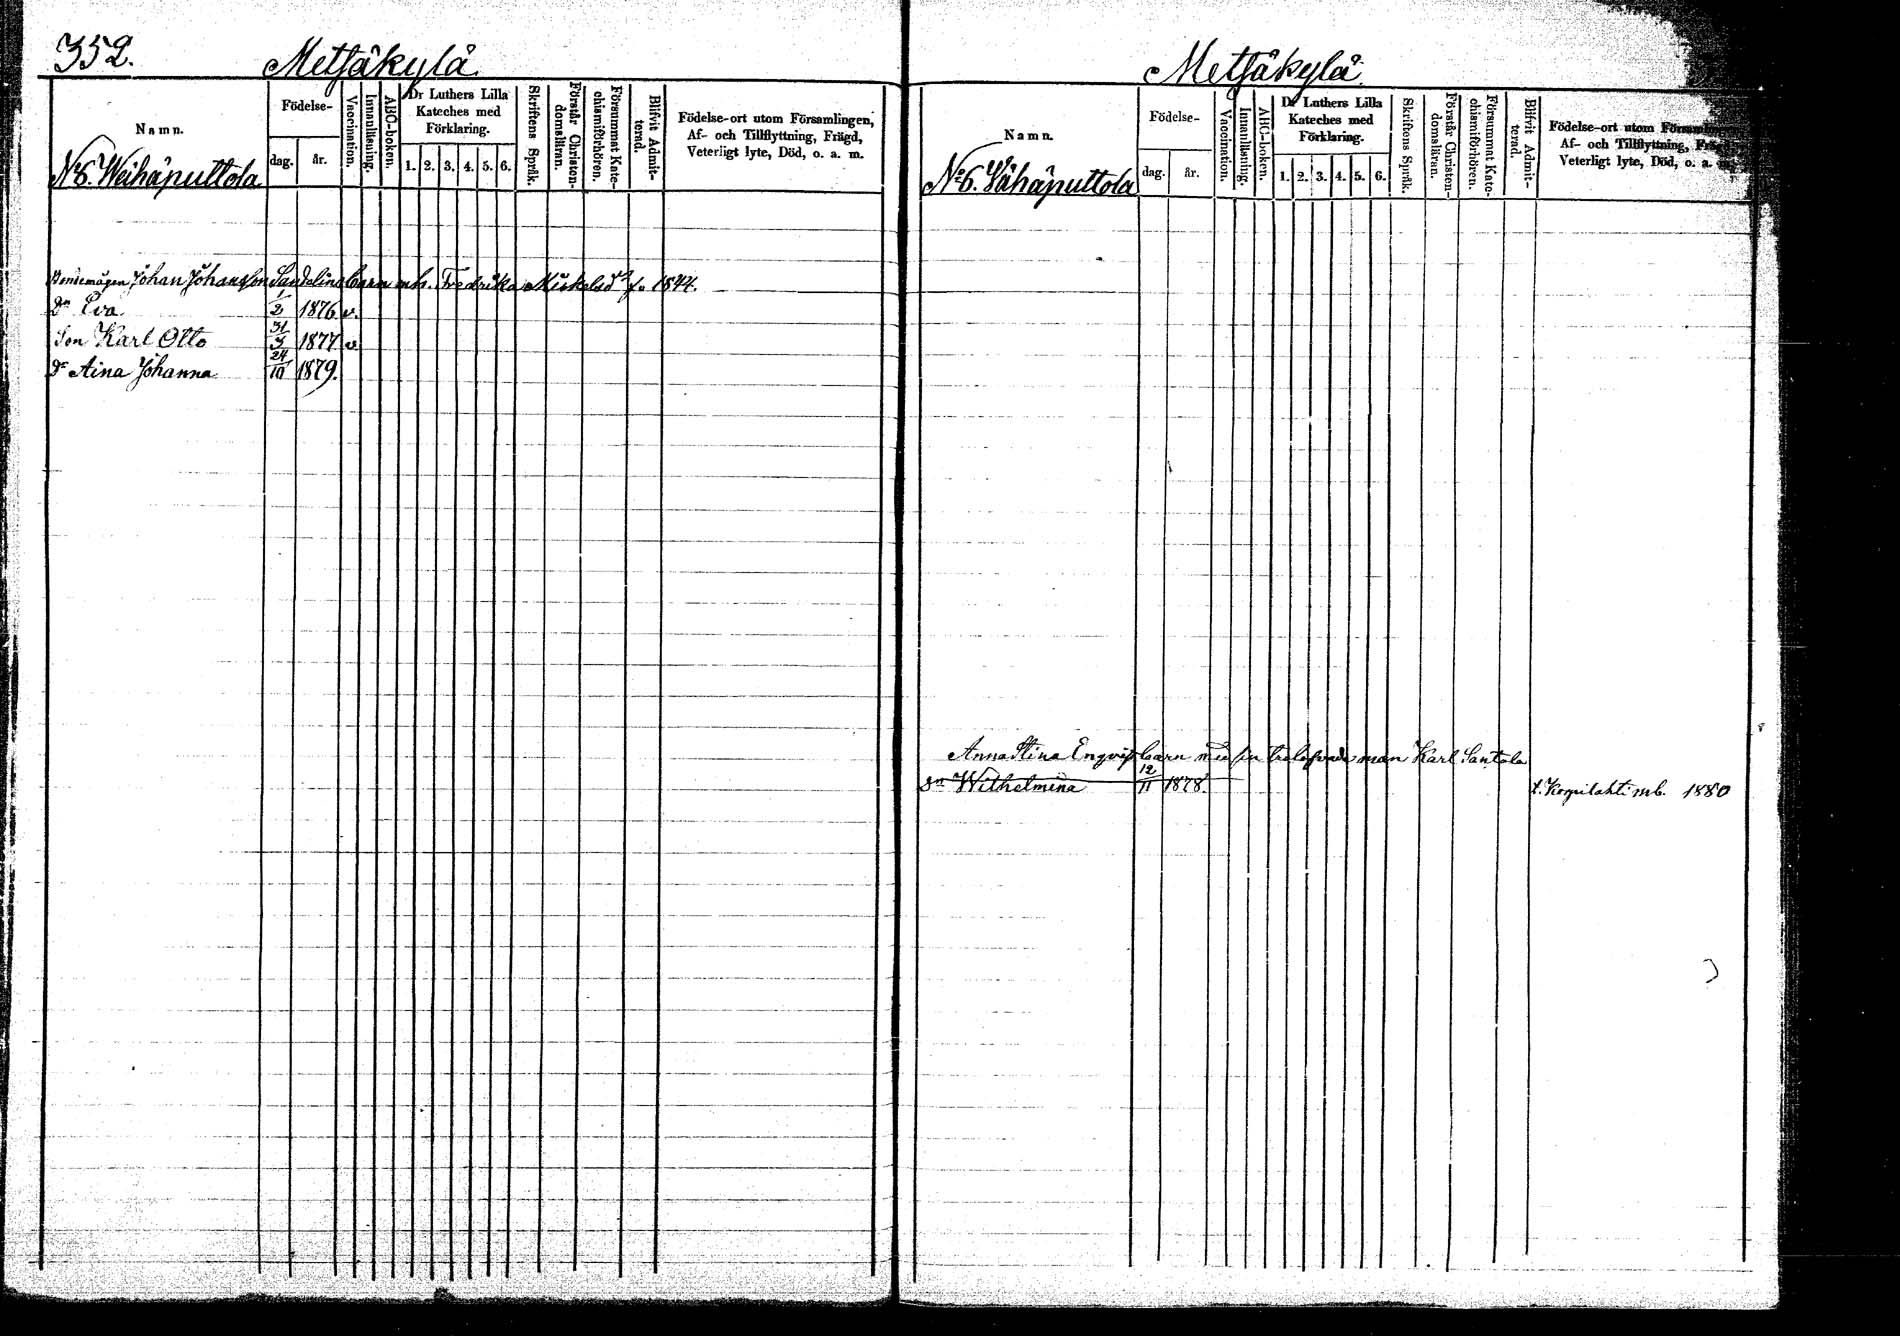 352.
Metsäkylä
Namn.
Födelse-
dag.
år.
Vaccination.
Innanläsning.
ABC-boken.
Dr Luthers Lilla
Kateches med
Förklaring.
1. 2. 3. 4. 5. 6.
Skriftens Språk.
Förstår Christen-
domsläran.
Försummat Kate-
chismiförhören.
Blifvit Admit-
terad.
Födelse-ort utom Församlingen,
Af- och Tillflyttning, Frägd,
Veterligt lyte, Död, o. a. m.
No 6. Weihäputtola
Bondemågen Johan Johansson Sandelins barn mh. Fredrika Mickelsdr f. 1844.
Dr Eva 1/2 1876 v.
Son Karl Otto 31/3 1877 v
Dr Aina Johanna 24/10 1879.
Metsäkylä
Namn.
Födelse-
dag.
år.
Vaccination.
Innanläsning.
ABC-boken.
Dr Luthers Lilla
Kateches med
Förklaring.
1. 2. 3. 4. 5. 6.
Skriftens Språk.
Förstår Christen-
domsläran.
Försummat Kate-
chismiförhören.
Blifvit Admit-
terad.
Födelse-ort utom
Af- och Tillflyttning,
Veterligt lyte, Död, o. a.
No 6. Wähäputtola
Anna Stina Engvist barn med sin trolofvade man Karl Santala
Wilhelmina 12/11 1878. t. Korpilahti mb. 1880